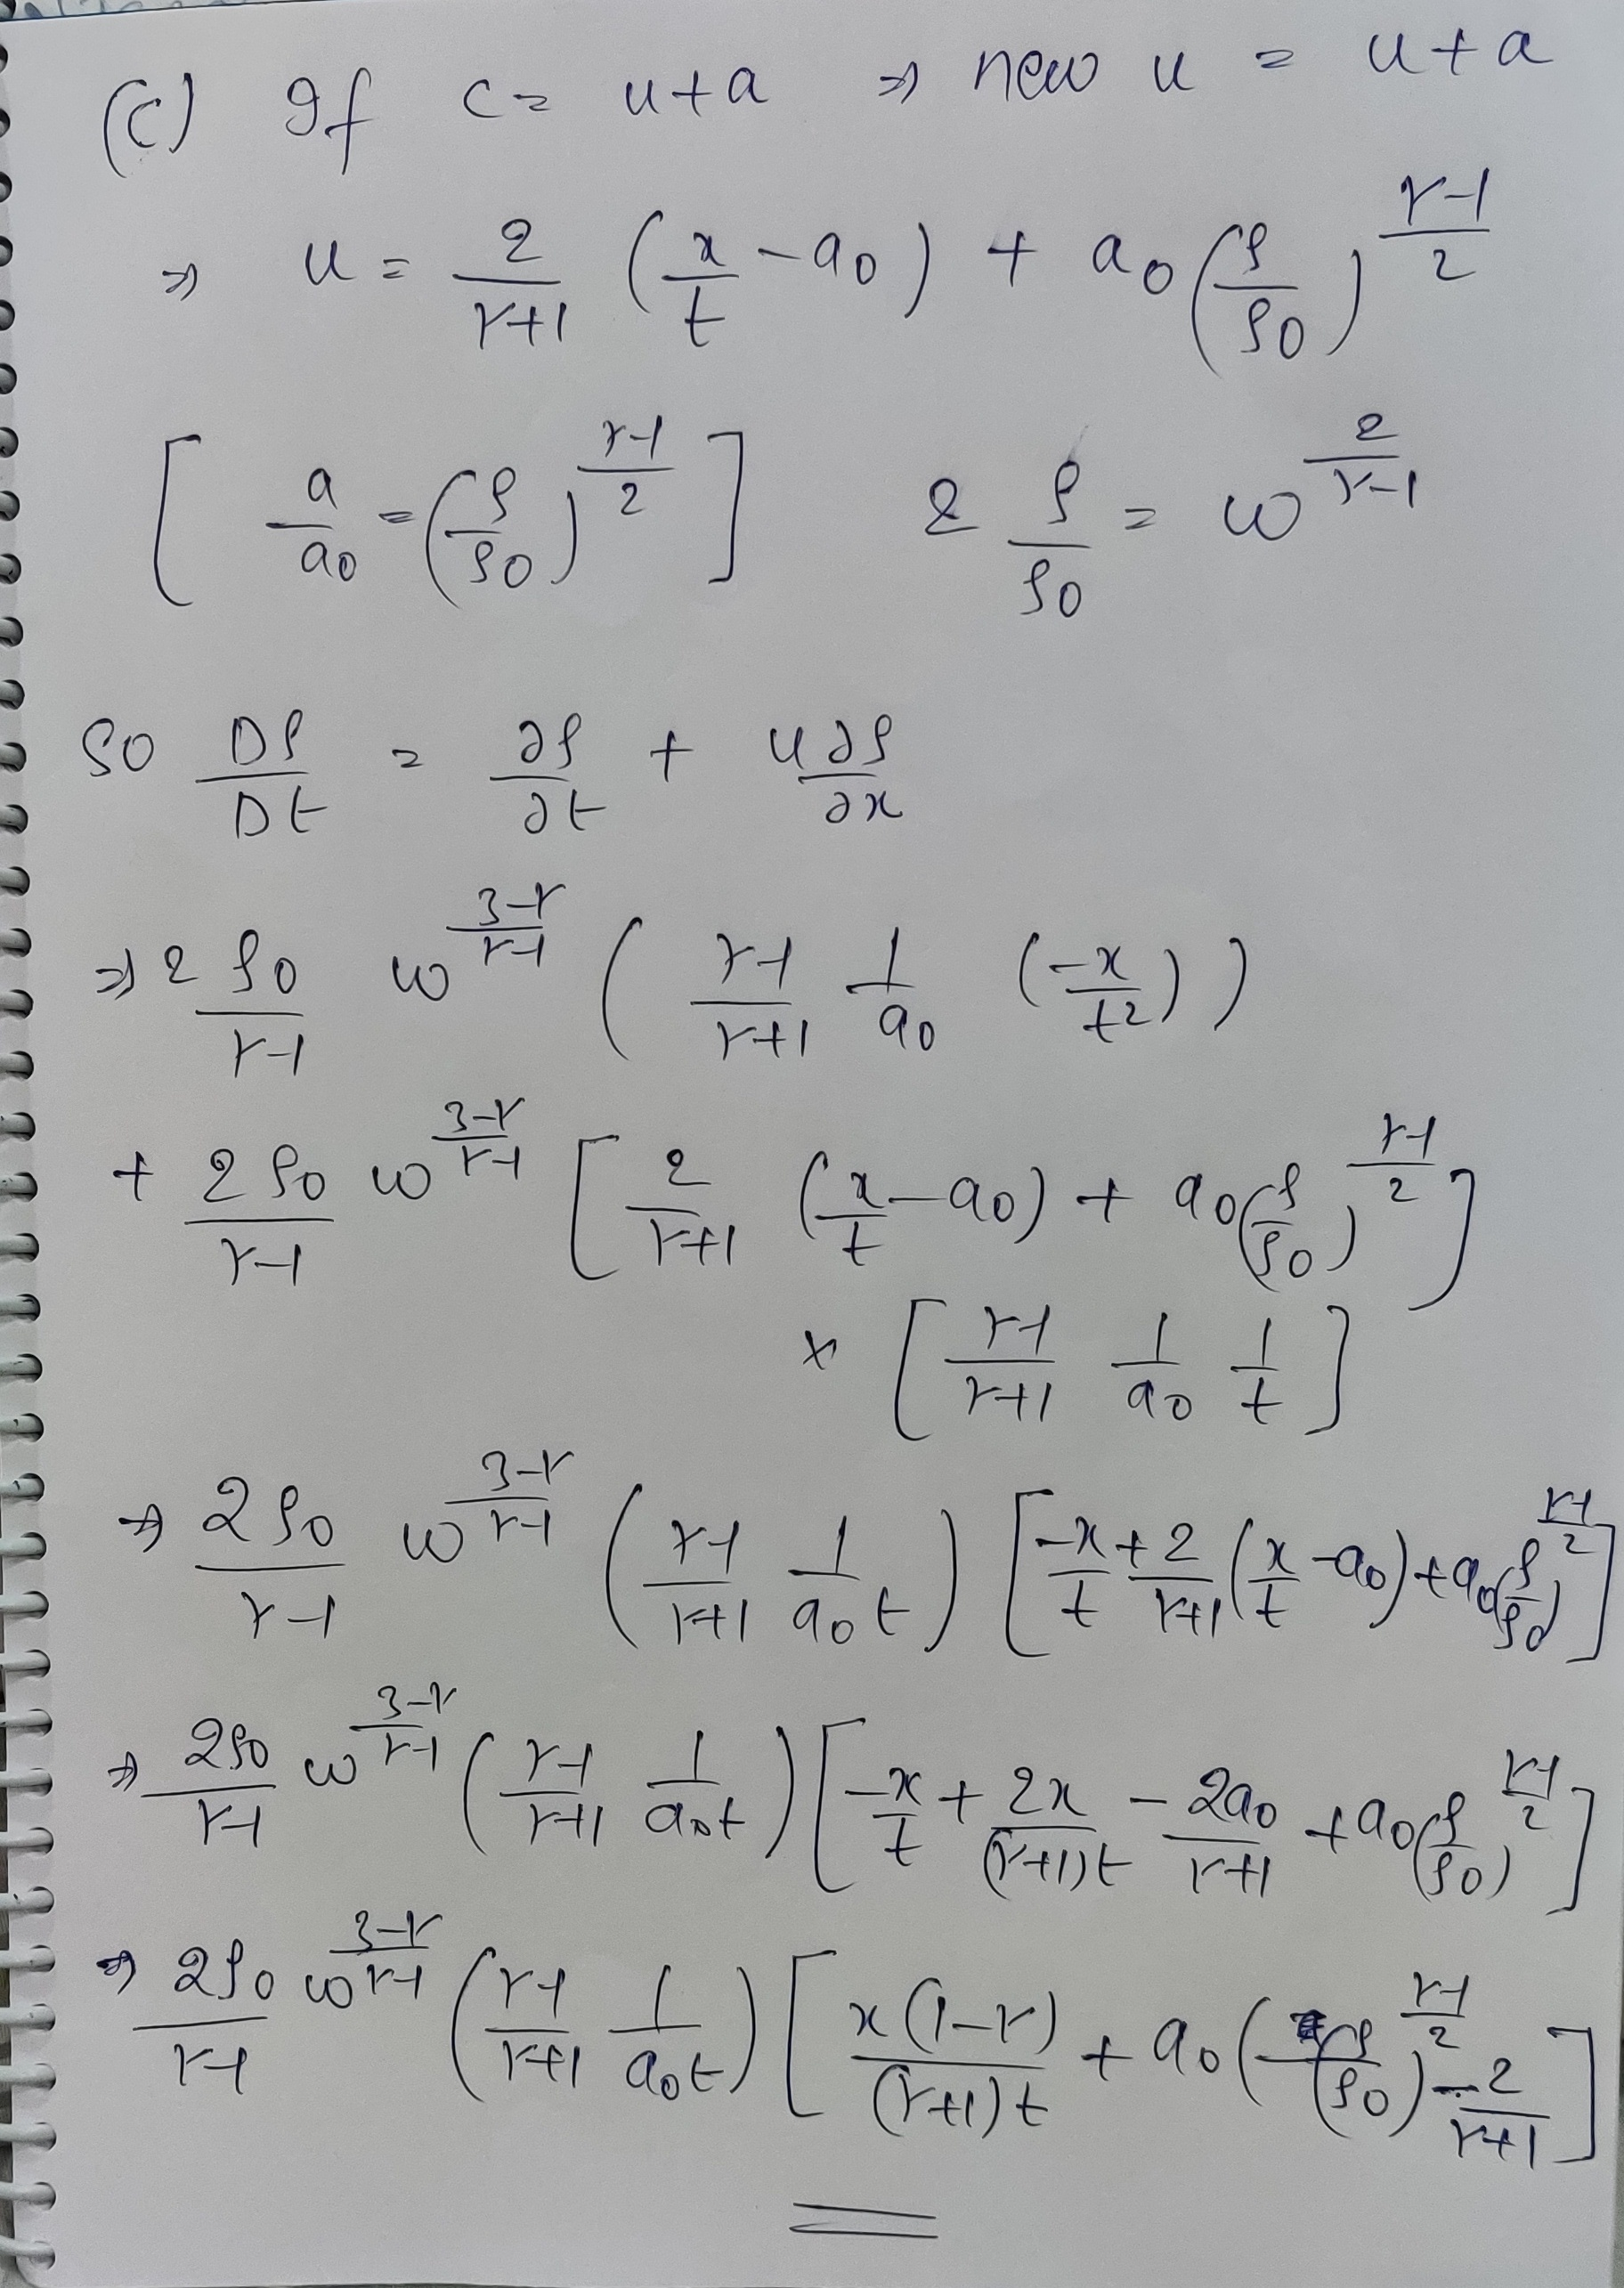 (c) If c = u+a ⇒ new u = u+a
⇒ u = 2/(γ+1) (x/t - a0) + a0(ρ/ρ0)^((γ-1)/2)
[ a/a0 = (ρ/ρ0)^((γ-1)/2) ] & ρ/ρ0 = w^(2/(γ-1))
so Dρ/Dt = ∂ρ/∂t + u∂ρ/∂x
⇒ 2ρ0/(γ-1) w^((3-γ)/(γ-1)) ( (γ-1)/(γ+1) 1/a0 (-x/t²) )
+ 2ρ0/(γ-1) w^((3-γ)/(γ-1)) [ 2/(γ+1) (x/t - a0) + a0(ρ/ρ0)^((γ-1)/2) ]
× [ (γ-1)/(γ+1) 1/a0 1/t ]
⇒ 2ρ0/(γ-1) w^((3-γ)/(γ-1)) ( (γ-1)/(γ+1) 1/(a0t) ) [ -x/t + 2/(γ+1) (x/t - a0) + a0(ρ/ρ0)^((γ-1)/2) ]
⇒ 2ρ0/(γ-1) w^((3-γ)/(γ-1)) ( (γ-1)/(γ+1) 1/(a0t) ) [ -x/t + 2x/((γ+1)t) - 2a0/(γ+1) + a0(ρ/ρ0)^((γ-1)/2) ]
⇒ 2ρ0/(γ-1) w^((3-γ)/(γ-1)) ( (γ-1)/(γ+1) 1/(a0t) ) [ x(1-γ)/((γ+1)t) + a0( (ρ/ρ0)^((γ-1)/2) - 2/(γ+1) ]